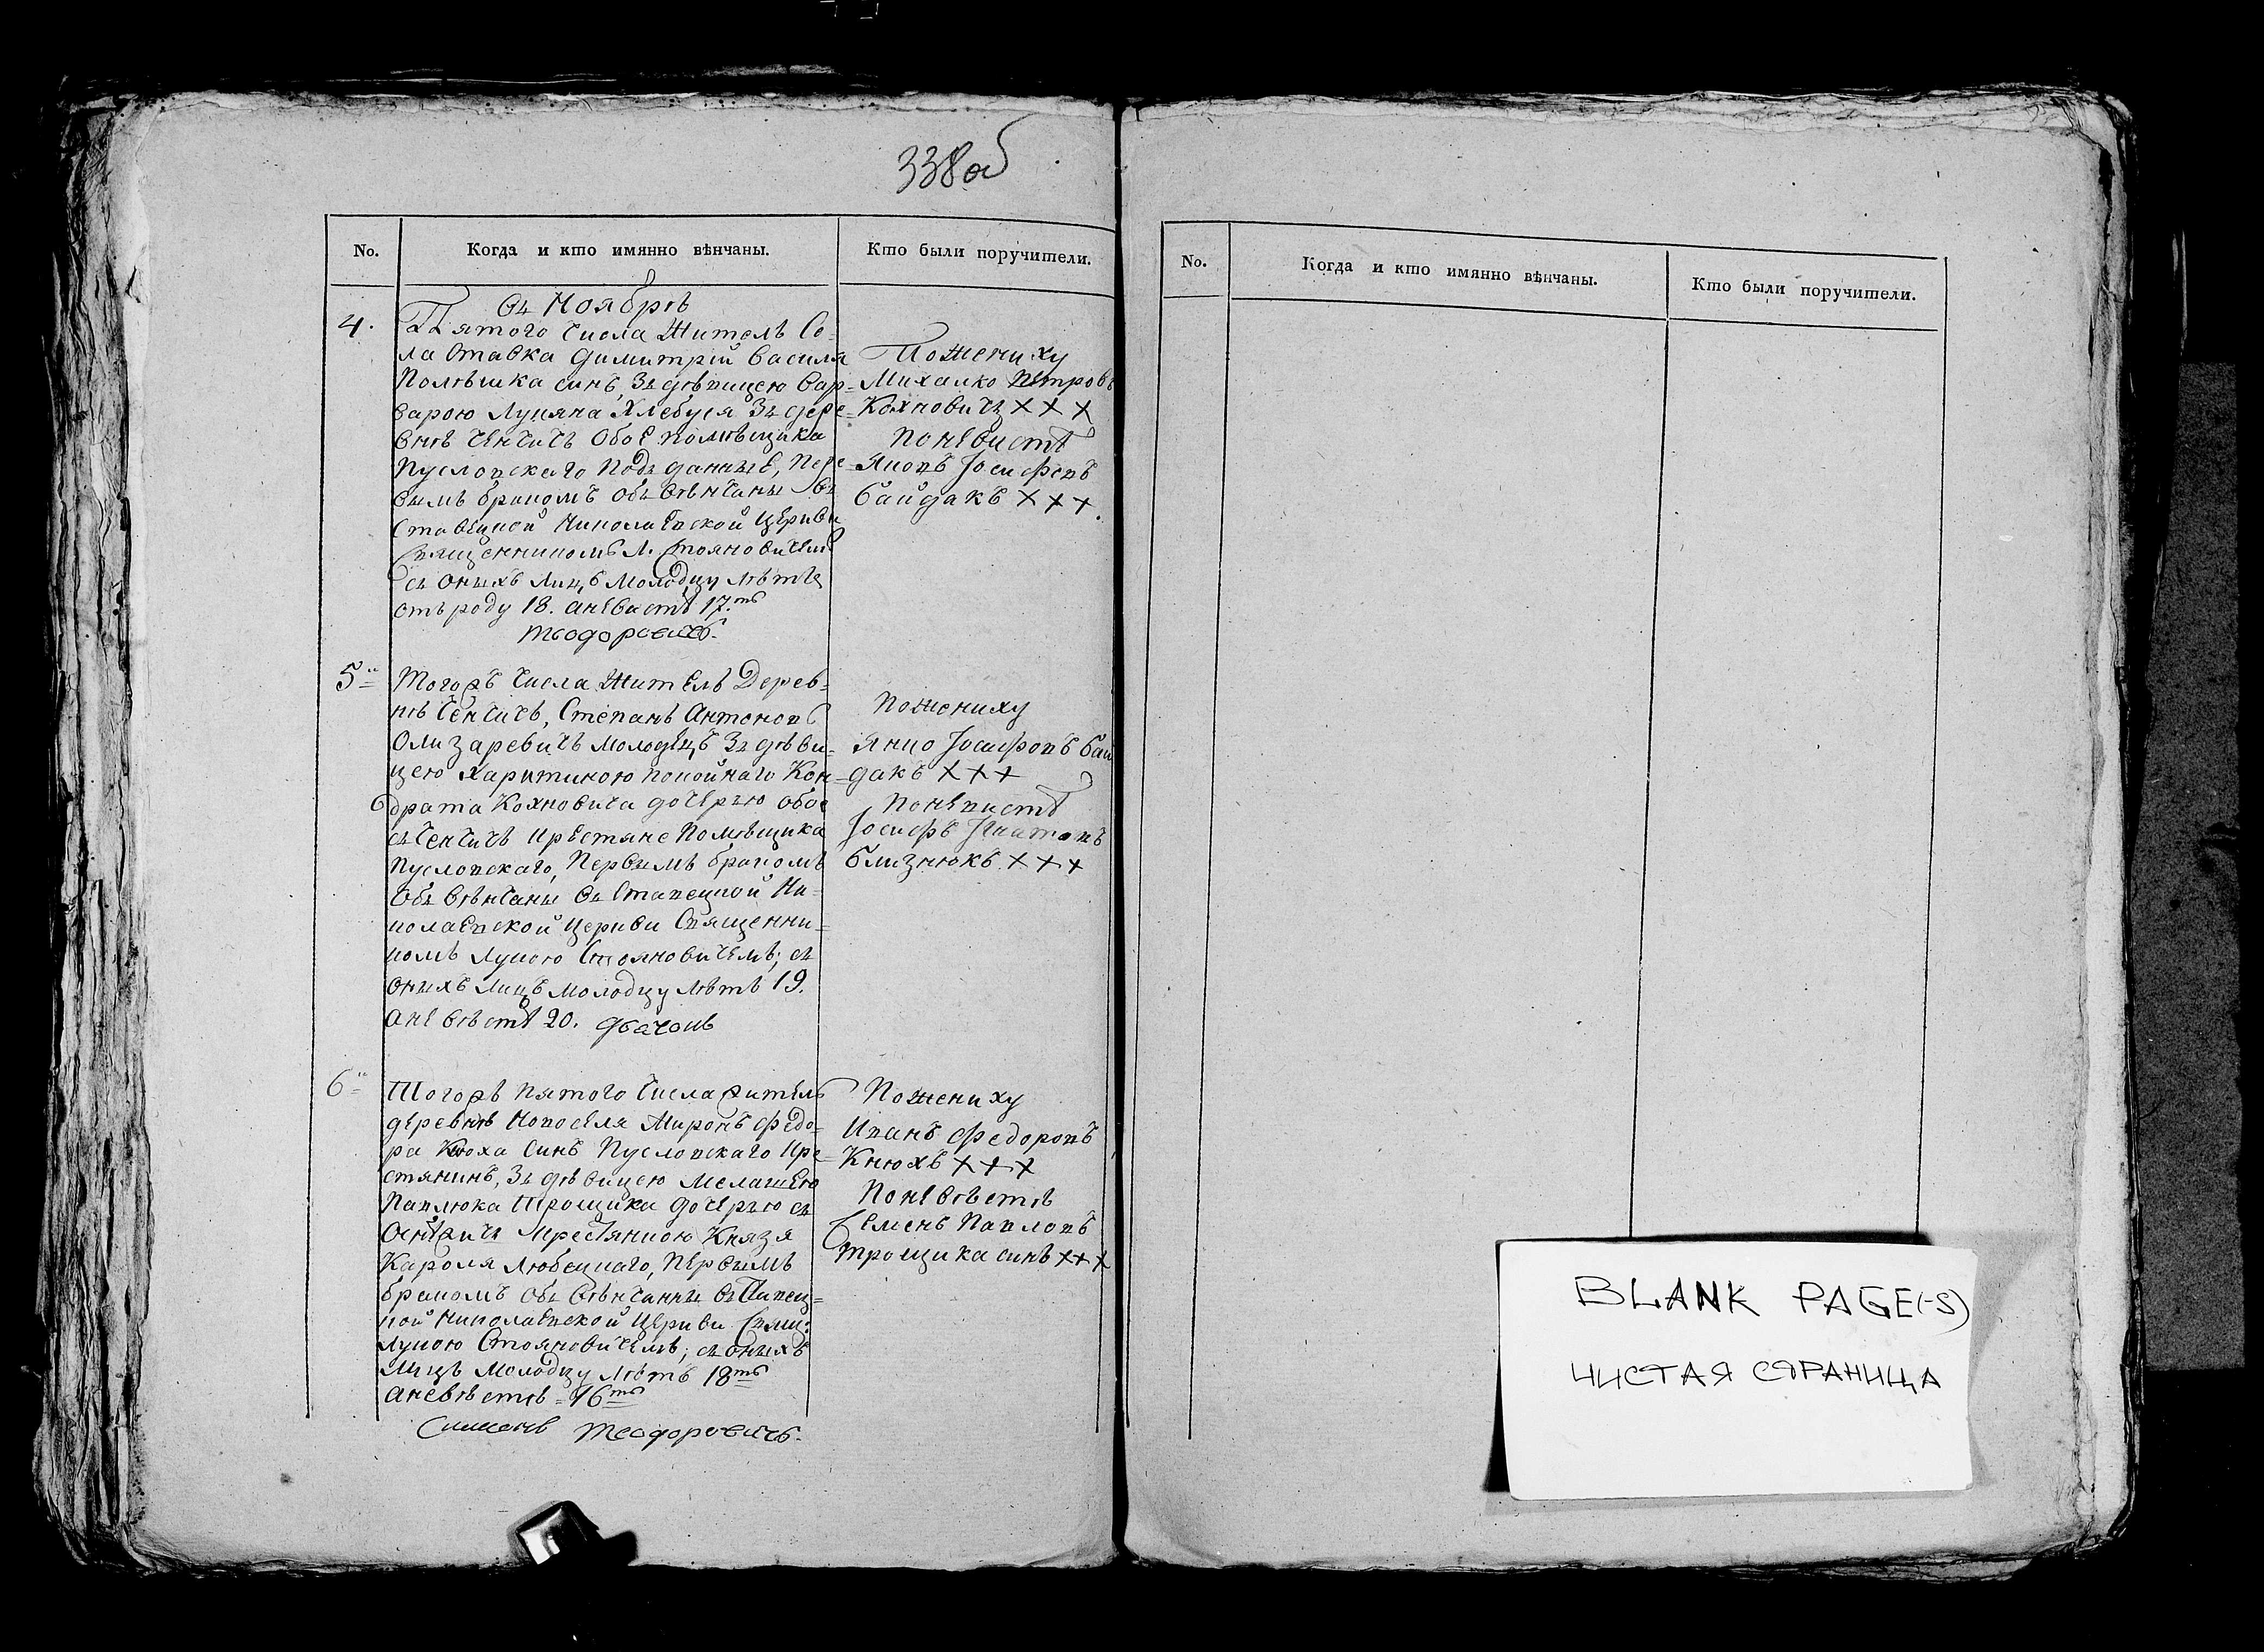 338об
No. Когда и кто имянно вѣнчаны. Кто были поручители.
Въ Ноябрѣ
4. Пятого числа житель Се-
ла Ставка Димитрій Василя
Полѣшка синъ, зъ дѣвицею Вар-
варою Луцяна Хлебуся зъ дере-
внѣ Ченчичъ обое помѣщика
Пусловскаго подъданные, пер-
вымъ бракомъ объвѣнчаны въ
Ставецкой Николаевской церкви
Священникомъ Л. Стояновичемъ
съ оныхъ лицъ молодцу лѣтъ
отъ роду 18. а невистѣ 17.тъ
Теодоровичъ.
По жениху
Михалко Петровъ
Кохновичъ ХХХ
По невистѣ
Яновъ Іосифовъ
Байдакъ ХХХ.
5. Тогожъ числа житель Дерев-
нѣ Ченчичъ, Степанъ Антоновъ
Олизаревичъ молодецъ зъ дѣви-
цею Харитиною покойнаго Кон-
драта Кохновича дочерью обое
съ Ченчичъ крестяне помѣщика
Пусловскаго, первымъ бракомъ
объвѣнчаны въ Ставецкой Ни-
колаевской церкви Священни-
комъ Лукою Стояновичемъ; съ
оныхъ лицъ молодцу лѣтъ 19.
а невѣстѣ 20. Дьячокъ
По жениху
Янко Іосифовъ Бай
дакъ ХХХ
По невистѣ
Іосифъ Игнатовъ
Близнюкъ. ХХХ
6. Тогожъ пятого числа житель
деревнѣ Новоселя Миронъ Федо-
ра Кнюха синъ Пусловскаго кре-
стянинъ, зъ дѣвицею Мелашею
Павлюка Трощика дочерью съ
крестянкою Князя
Кароля Любецкаго, первымъ
бракомъ объвѣнчанны въ Ставец-
кой Николаевской церкви Свящ:
Лукою Стояновичемъ; съ оныхъ
лицъ молодцу лѣтъ 18тъ
а невѣстѣ - 16тъ
Симеонъ Теодоровичъ.
По жениху
Иванъ Федоровъ
Кнюхъ ХХХ
По невѣстѣ
Семенъ Павловъ
Трощика синъ ХХХ
No. Когда и кто имянно вѣнчаны. Кто были поручители.
BLANK PAGE(-S)
ЧИСТАЯ СТРАНИЦА